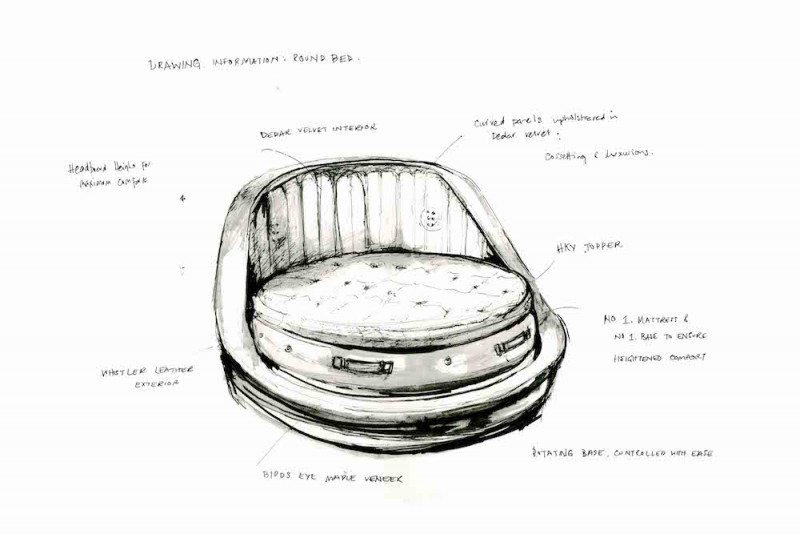 DRAWING INFORMATION: ROUND BED.
DEDAR VELVET INTERIOR
Curved panels upholstered in
Dedar velvet:
Cosseting & Luxurious.
Headboard Height for
maximum comfort
HKY TOPPER
NO 1. MATTRESS &
NO 1. BASE TO ENSURE
HEIGHTENED COMFORT
WHISTLER LEATHER
EXTERIOR
ROTATING BASE, CONTROLLED WITH EASE
BIRDS EYE MAPLE VENEER